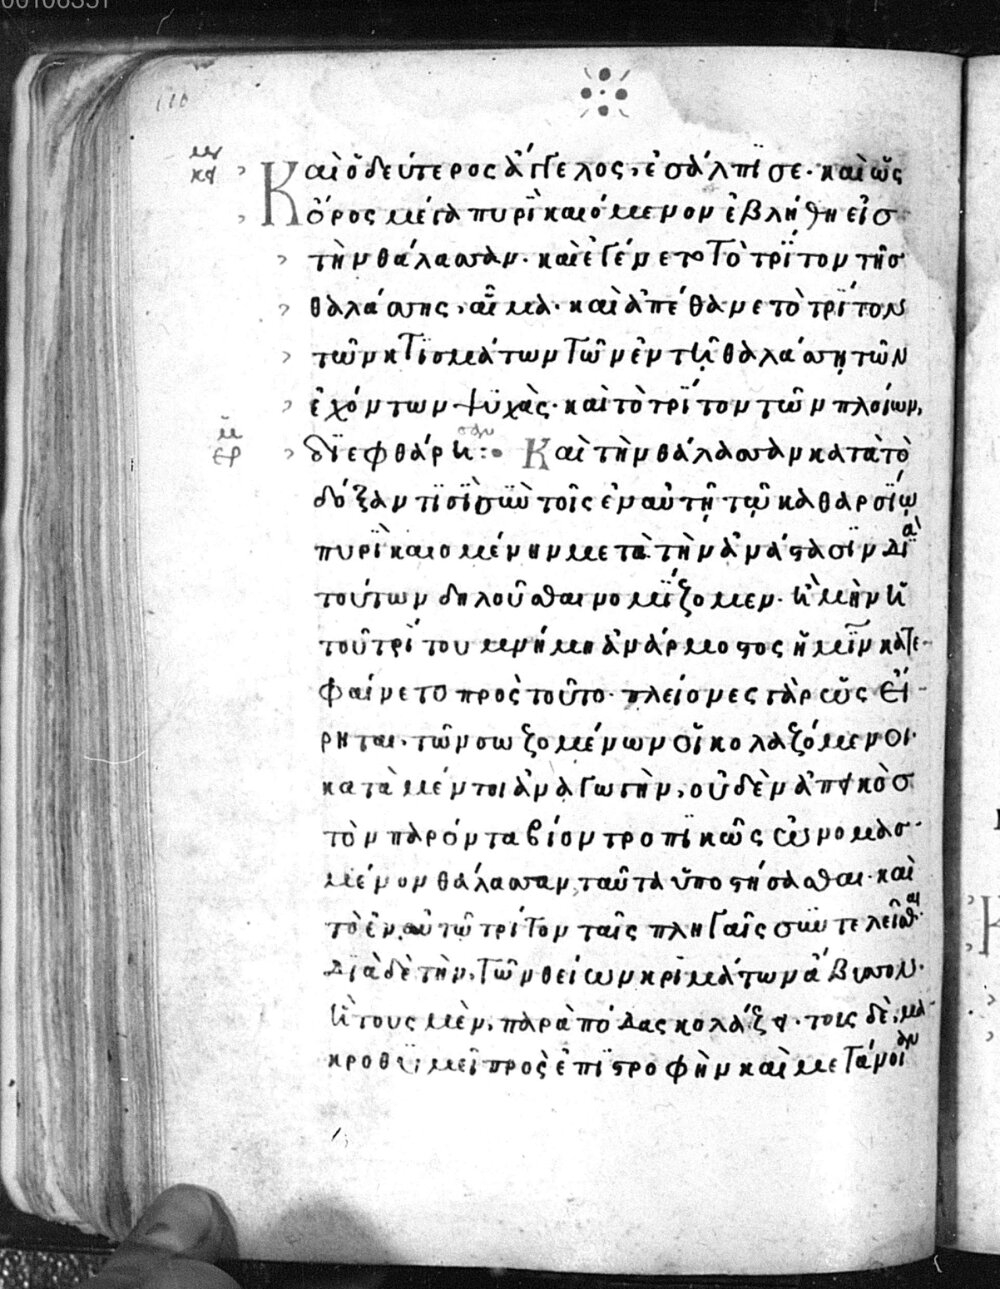 Καὶ ὁ δεύτερος ἄγγελος, ἐσάλπϊσε· καὶ ὡς
ὄρος μέγα πυρὶ καιόμενον ἐβλήθη εἰσ
τὴν θάλασσαν· καὶ ἐγένετο τὸ τρίτον τῆσ
θαλάσσης, αἷμα· καὶ ἀπέθανε τὸ τρίτον
τῶν κτϊσμάτων τῶν ἐν τῇ θαλάσσῃ τῶν
ἐχόντων ψϋχὰς· καὶ τὸ τρίτον τῶν πλοίων,
δϊεφθάρη: Καὶ τὴν θάλασσαν κατὰ τὸ
δόξαν τϊσὶ σὺν τοῖς ἐν αὐτῇ τῶ καθαρσίω
πυρὶ καιομένην μετὰ τὴν ἀνάστασϊν διὰ
τούτων δηλοῦσθαι νομίζομεν· εἰ μὴν ἡ
τοῦ τρίτου μνήμη ἀνάρμοστος ἡμῖν κατε-
φαίνετο πρὸς τοῦτο· πλείονες γὰρ ὡς εἴ-
ρηται, τῶν σωζομένων οἱ κολαζόμενοι·
κατὰ μέντοι ἀναγωγὴν, οὐδὲν ἀπεικὸσ
τὸν παρόντα βίον τροπϊκῶς ὠνομασ-
μένον θάλασσαν, ταῦτα ὑποστήσασθαι· καὶ
τὸ ἐν αὐτῶ τρίτον ταῖς πληγαῖς συντελεῖσθαι
διὰ δὲ τὴν, τῶν θείων κριμάτων ἄβυσσον·
ἣ τους μὲν, παρὰ πόδας κολάζει· τοις δὲ, μα-
κροθϋμεῖ πρὸς ἐπϊστροφὴν καὶ μετάνοιαν